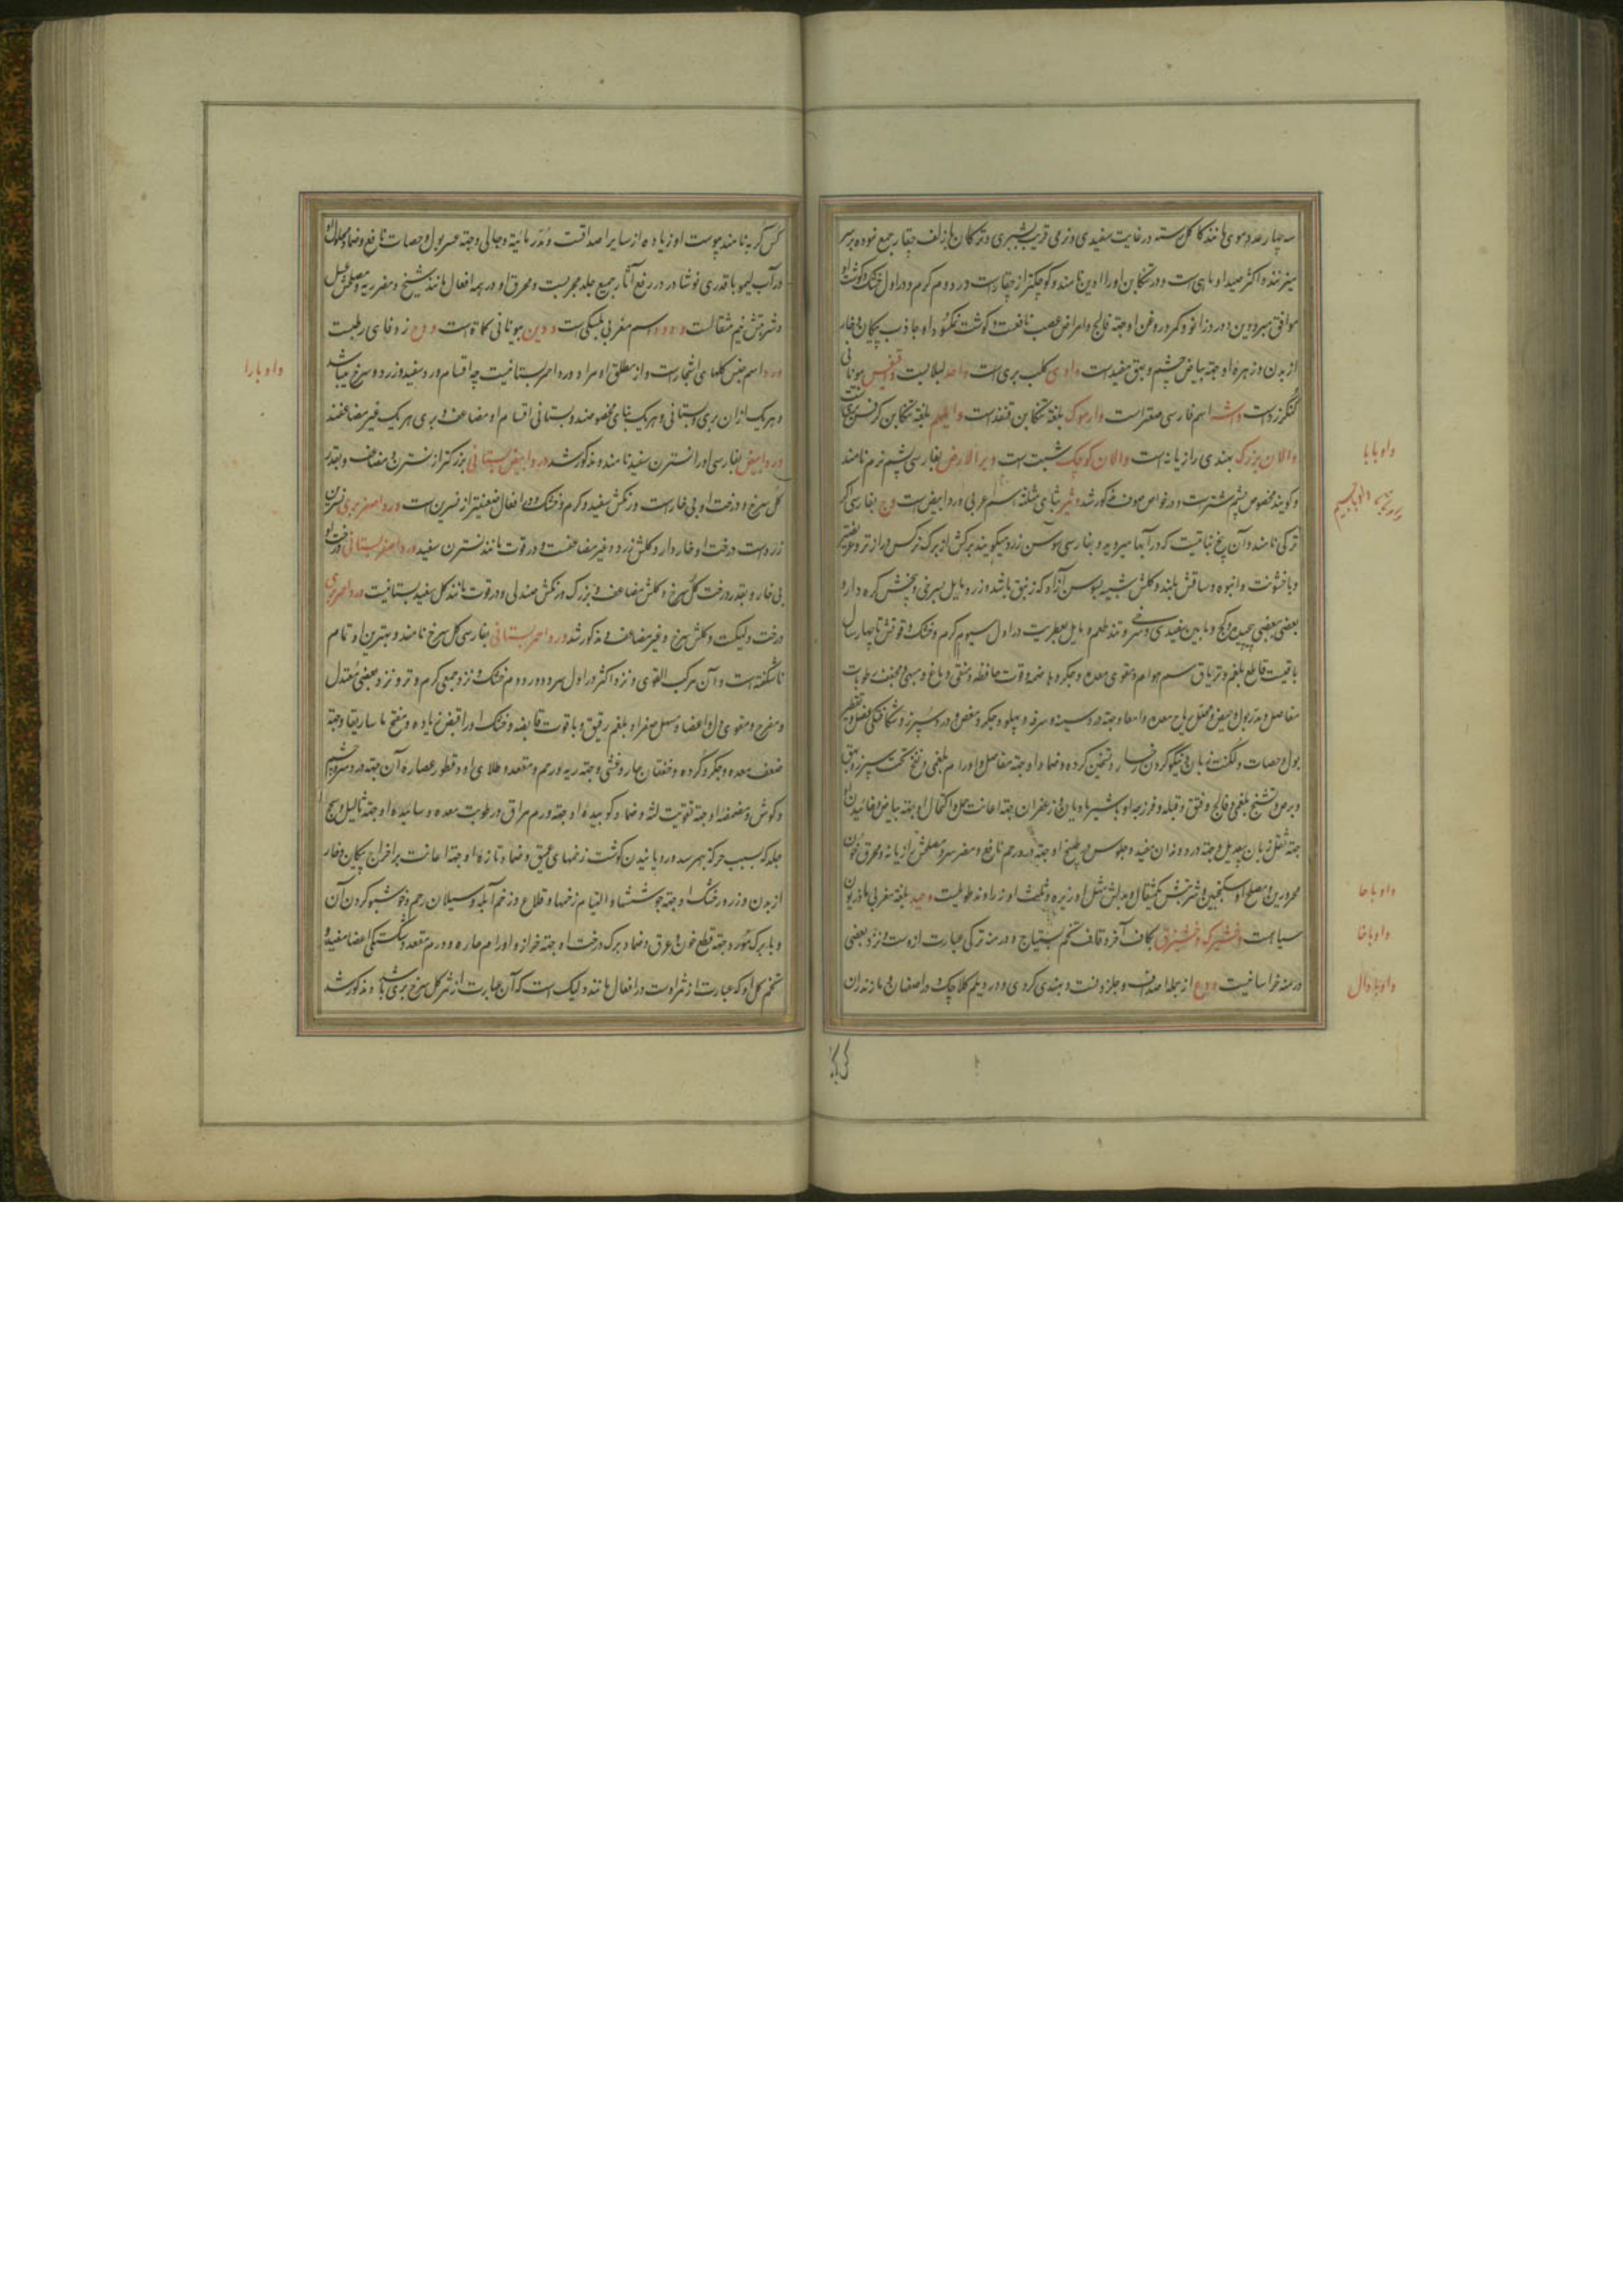 سه چهار عدد موی مانند کاکل رسته در غایت سفیدی و نرمی قریب بشبری و ترکان بازلف چقار جمع نموده بر سر
میزنند و اکثر صید او ماهی است و در تنکابن او را ادین نامند و کوچکتر از چقار است در دوم کرم و در اول خشک و کوشت او
موافق مبرودین و درد زانو و کمر و روغن او جهة فالج و امراض عصب نافعست و کوشت نمکسود او جاذب پیکان و خار
از بدن و زهره او جهة بیاض چشم و بهق مفیدست واوی کلب بری است واحد لبلابیست واقفیس بیونانی
کنکرزد است وشه اسم فارسی صقر است وارموک بلغة تنکابن قنفذ است وایلم بلغة تنکابن کرفس بریست
والان بزرک بهندی رازیانه است والان کوچک شبت است وبر الارض بفارسی پشم نرم نامند
واو با با
و کویند مخصوص پشم شتر است و در خواص صوف مذکور شد وثیر بثای مثلثه اسم عربی ورد ابیض است وج بفارسی اکر
ترکی نامند و آن بیخ نباتیست که در آبها میروید و بفارسی سوسن زرد میکویند برکش از برک نرکس دراز تر و عریضتر
و با خشونت و انبوه و ساقش بلند و کلش شبیه بسوسن آزاد که زنبق باشد و زرد مایل بسرخی و بیخش کره دار و
بعضی ببعضی پیچیده و کج و مابین سفیدی و سرخی و تند طعم و مایل بعطریت در اول سیوم کرم و خشک و قوتش تا چهار سال
باقیست قاطع بلغم و تریاق سم هوام و مقوی معده و جکر و هاضمه و قوت حافظه و منقی دماغ و مبهی و مجفف رطوبات
مفاصل و مدر بول و حیض و محلل ریاح معده و امعا و جهة درد سینه و سرفه و پهلو و جکر و مغص و درد سپرز و شکافتکی عضل و تقطیر
بول و حصات و لکنت زبان و نیکو کردن رخسار و تسخین کرده و ضماد او جهة مفاصل و اورام بلغمی و نفخ تحت سپرز و بهق
و برص و تشنج بلغمی و فالج و فتق و قیله و فرزجه او با شیر مادیان و زعفران جهة اعانت حمل و اکتحال او جهة بیاض و خائیدن او
جهة ثقل زبان بیعدیل و جهة درد دندان مفید و جلوس در طبیخ او جهة درد رحم نافع و مضر سر و مصلحش رازیانه و محرق خون
محرورین و مصلح او سکنجبین و شربتش یکمثقال و بدلش مثل او زیره و ثلیث او زراوند طویلست وحید بلغة مغربی ماذریون
واو با حا
سیاه است وخشیرک وخشیزق بکاف آخر و قاف تخم بستیاج و درمنه ترکی عبارت ازوست و نزد بعضی
واو با خا
درمنه خراسانیست ودع از جمله اصدافست و جلزونست و بهندی کردی و در دیلم کلاچک و در اصفهان و مازندران
واو با دال
کس کربه نامند پوست او زیاده از سایر اصدافست و مدر مائیة و جالی و جهة عسر بول و حصات نافع و ضماد محلول او
در آب لیمو با قدری نوشادر در رفع آثار جمیع جلد مجربست و محرق او در همه افعال مانند شیخ و مضر ریه و مصلحش عسل
و شربتش نیم مثقالست ودد اسم مغربی بلبکی است ودین بیونانی کماة است ودح زوفای رطبست
ورد اسم جنس کلهای اشجار است و از مطلق او مراد ورد احمر بستانیست چه اقسام ورد سفید و زرد و سرخ میباشد
واو با را
و هر یک ازان بری و بستانی و هر یک بنامی مخصوصند و بستانی اقسام او مضاعف و بری هر یک غیر مضاعفند
ورد ابیض بفارسی او را نسترن سفید نامند و مذکور شد ورد ابیض بستانی بزرکتر از نسترن و مضاعف و بقدر
کل سرخ و درخت او بی خار است و رنکش سفید و کرم و خشک و در افعال ضعیفتر از نسرین است ورد اصفر بری نسرین
زرد است درخت او خار دار و کلش زرد و غیر مضاعفست و در قوت مانند نسترن سفید ورد اصفر بستانی درخت او
بی خار و بقدر درخت کل سرخ و کلش مضاعف و بزرک و رنکش صندلی و در قوت مانند کل سفید بستانیست ورد احمر بری
درخت دلیکست و کلش سرخ و غیر مضاعف و مذکور شد ورد احمر بستانی بفارسی کل سرخ نامند و بهترین او تمام
ناشکفته است و آن مرکب القوی و نزد اکثر در اول سرد و در دوم خشک و نزد جمعی کرم و تر و نزد بعضی معتدل
و مفرح و مقوی دل و اعضا و مسهل صفرا و بلغم رقیق و با قوت قابضه و خشک او را قبض زیاده و مفتح ماساریقا و جهة
ضعف معده و جکر و کرده و خفقان حار و غشی و جهة ریه و رحم و مقعد و طلای او و قطور عصاره آن جهة درد سر و چشم
و کوش و مضمضه او جهة تقویت لثه و ضماد کوبیده او جهة ورم مراق و رطوبت معده و سائیده او جهة ثالیل و سحج
جلد که بسبب حرکة بهمرسد و رویانیدن کوشت زخمهای عمیق و ضماد تازه او جهة اعانت بر اخراج پیکان و خار
از بدن و زرور خشک او جهة جوششها و التیام زخمها و قلاع و زخم آبله و سیلان رحم و خوشبو کردن آن
و با برک مورد جهة قطع خون و عرق و ضماد برک درخت او جهة خراز و اورام حاره و ورم مقعد و شکستکی اعضا مفید و
تخم کل او که عبارت از ثمر اوست در افعال مانند دلیک است که آن عبارت از ثمر کل سرخ بری باشد و مذکور شد